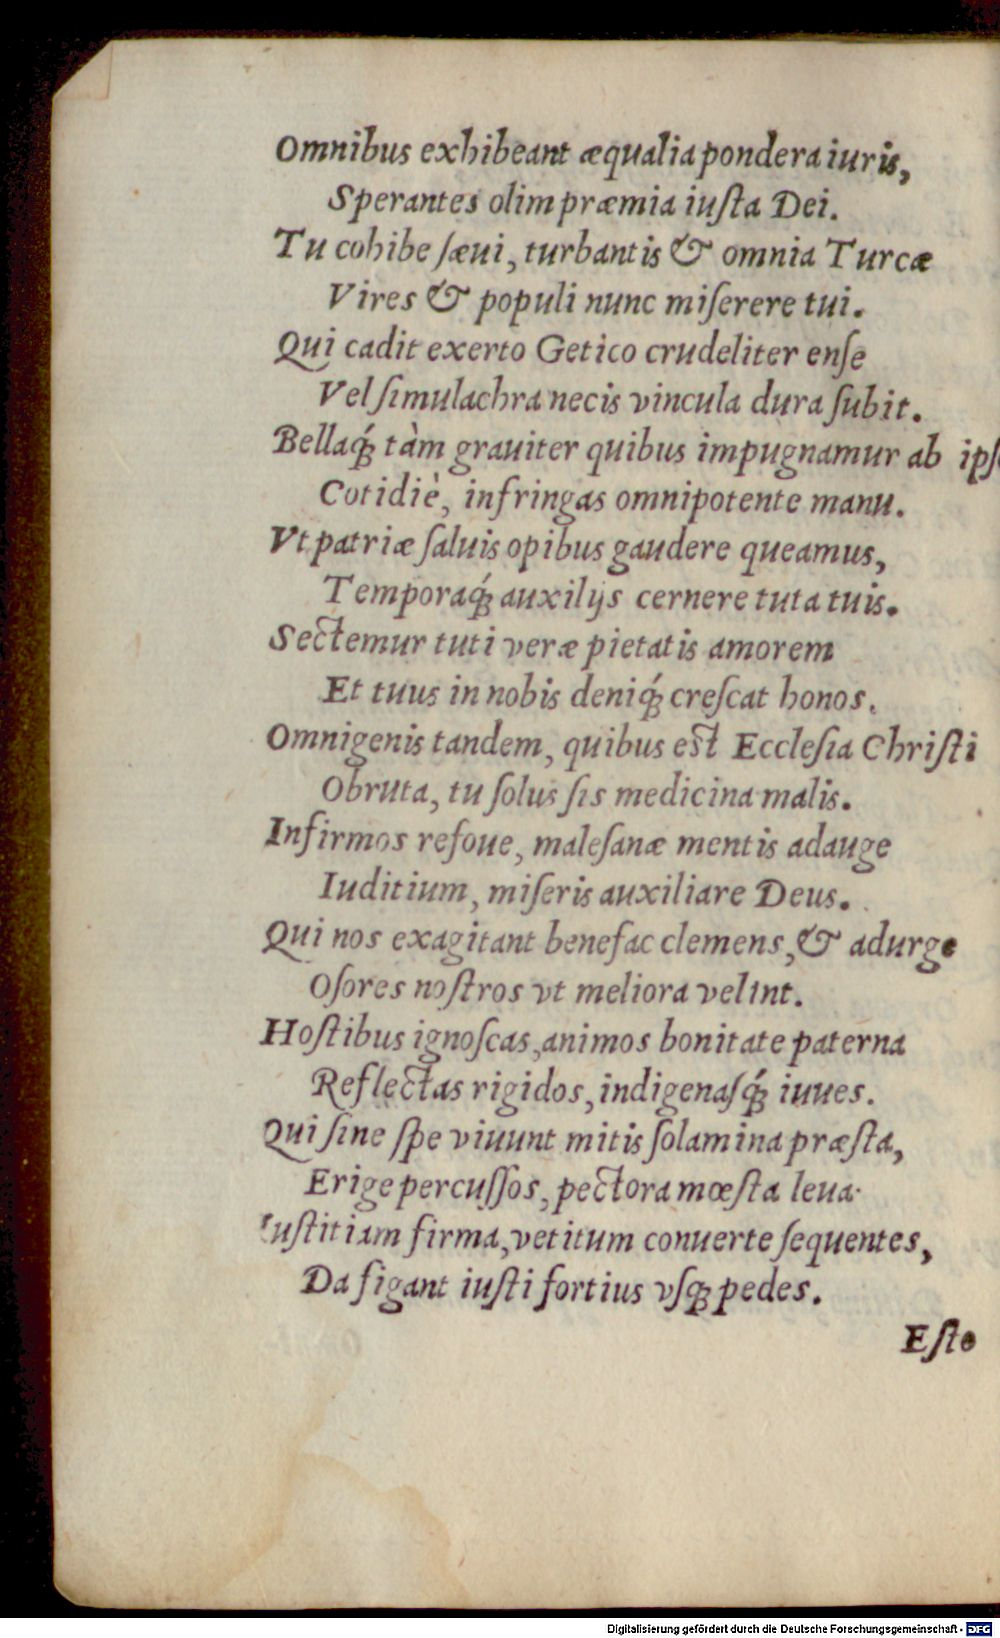 Omnibus exhibeant æqualia pondera iuris,
Sperantes olim præmia iuſta Dei.
Tu cohibe ſæui, turbantis & omnia Turcæ
Vires & populi nunc miſerere tui.
Qui cadit exerto Getico crudeliter enſe
Vel ſimulachra necis vincula dura ſubit.
Bellaq́; tàm grauiter quibus impugnamur ab ipſo
Cotidiè, infringas omnipotente manu.
Vt patriæ ſaluis opibus gaudere queamus,
Temporaq́; auxilijs cernere tuta tuis.
Sectemur tuti veræ pietatis amorem
Et tuus in nobis deniq́; creſcat honos.
Omnigenis tandem, quibus est Ecclesia Chriſti
Obruta, tu ſolus ſis medicina malis.
Infirmos refoue, maleſanæ mentis adauge
Iuditium, miſeris auxiliare Deus.
Qui nos exagitant benefac clemens, & adurge
Oſores noſtros vt meliora velint.
Hoſtibus ignoſcas, animos bonitate paterna
Reflectas rigidos, indigenaſq́; iuues.
Qui ſine ſpe viuunt mitis ſolamina præſta,
Erige percuſſos, pectora mœſta leua.
Iuſtitiam firma, vetitum conuerte ſequentes,
Da figant iuſti fortius vſq; pedes.
Eſto
Digitalisierung gefördert durch die Deutsche Forschungsgemeinschaft - DFG